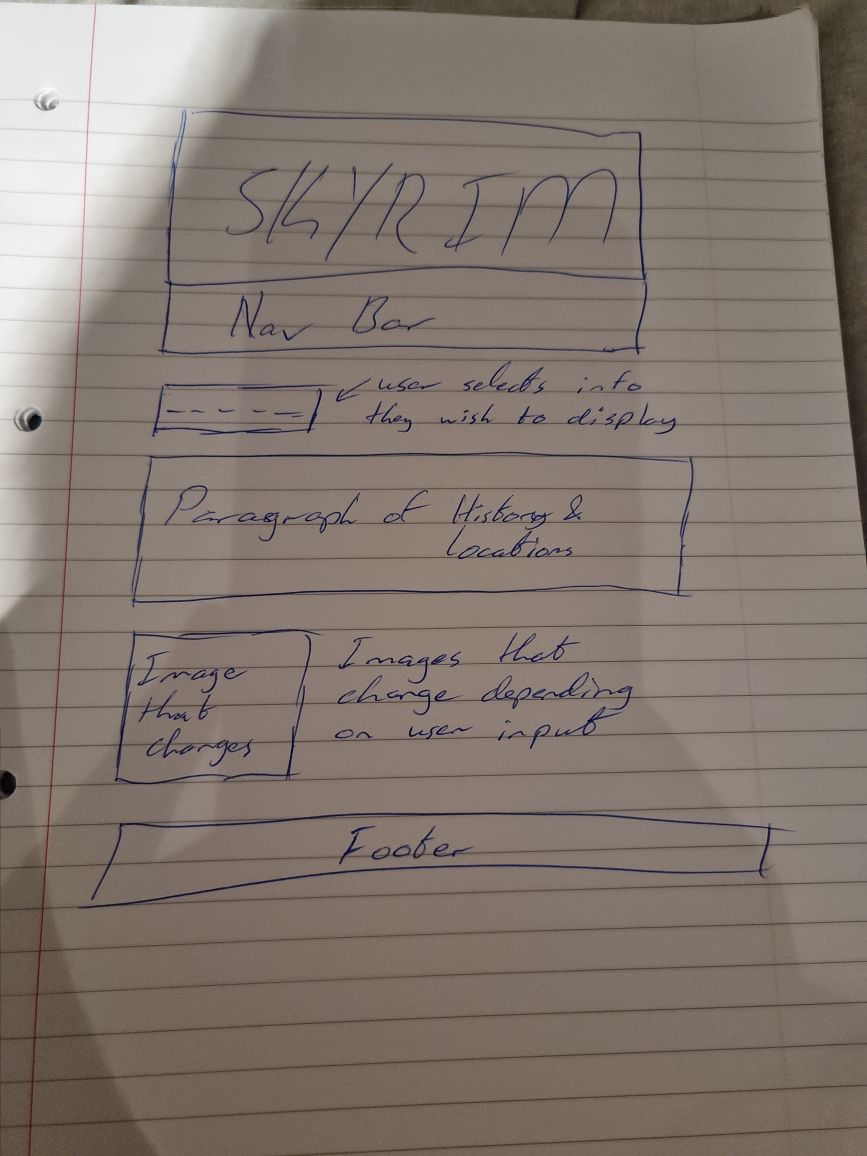 SKYRIM
Nav Bar
user selects info
they wish to display
Paragraph of History &
Locations
Image
that
changes
Images that
change depending
on user input
Footer